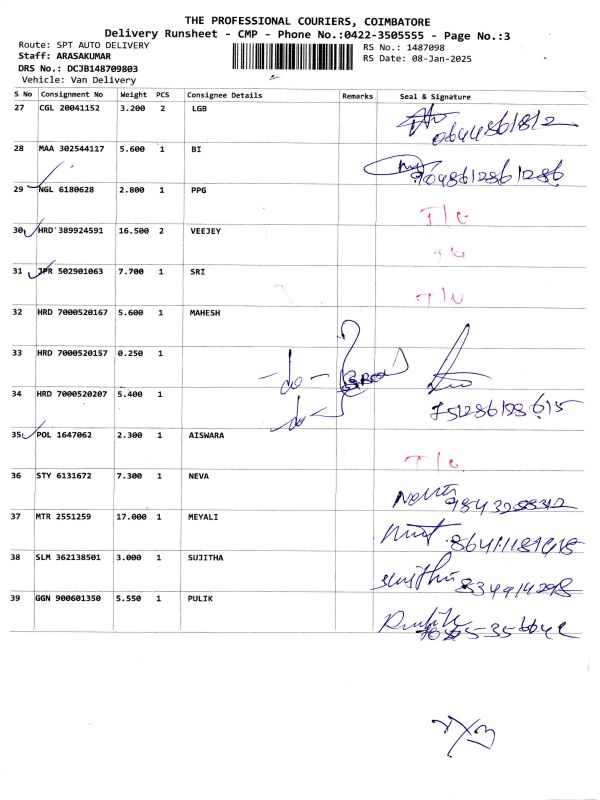 THE PROFESSIONAL COURIERS, COIMBATORE
Delivery Runsheet - CMP - Phone No.:0422-3505555 - Page No.:3
Route: SPT AUTO DELIVERY RS No.: 1487098
Staff: ARASAKUMAR RS Date: 08-Jan-2025
DRS No.: DCJB148709803
Vehicle: Van Delivery
S No Consignment No Weight PCS Consignee Details Remarks Seal & Signature
27 CGL 20041152 3.200 2 LGB
28 MAA 302544117 5.600 1 BI
29 NGL 6180628 2.800 1 PPG
30 HRD 389924591 16.500 2 VEEJEY
31 JPR 502901063 7.700 1 SRI
32 HRD 7000520167 5.600 1 MAHESH
33 HRD 7000520157 0.250 1 -do-
34 HRD 7000520207 5.400 1 -do-
35 POL 1647062 2.300 1 AISWARA
36 STY 6131672 7.300 1 NEVA
37 MTR 2551259 17.000 1 MEYALI
38 SLM 362138501 3.000 1 SUJITHA
39 GGN 900601350 5.550 1 PULIK